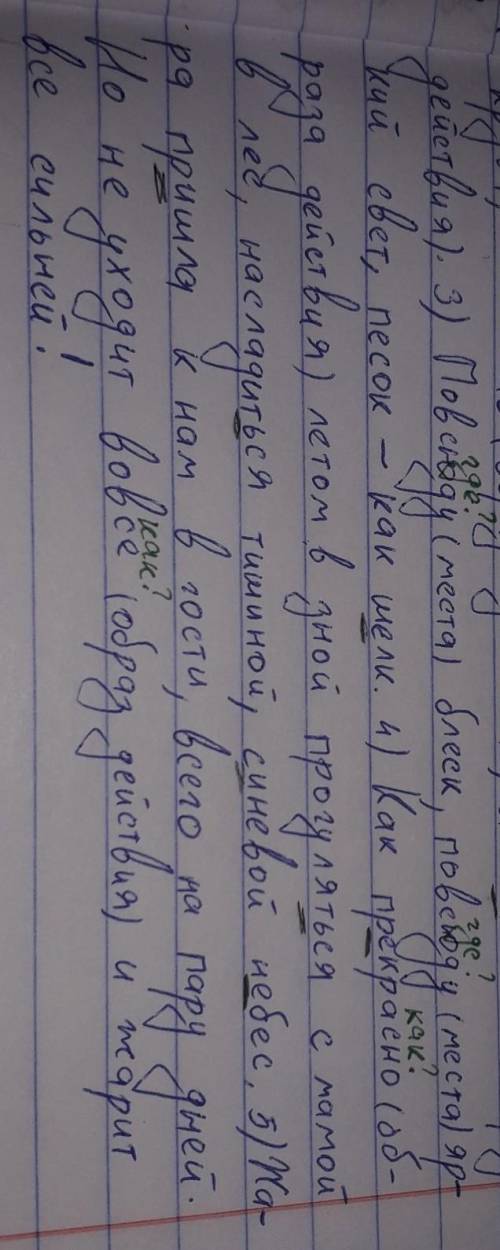 где? где?
действия). 3) Повсюду (места) блеск, повсюду (места) яр-
как?
кий свет, песок - как шелк. 4) Как прекрасно (об-
раза действия) летом в зной прогуляться с мамой
в лес, насладиться тишиной, синевой небес. 5) Жа-
ра пришла к нам в гости, всего на пару дней.
как?
Но не уходит вовсе (образ действия) и жарит
все сильней!